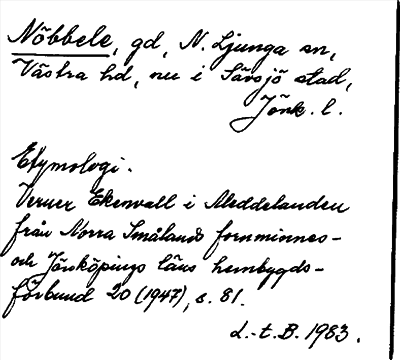 Nöbbele, gd, N. Ljunga sn,
Västra hd, nu i Sävsjö stad,
Jönk. l.
Etymologi.
Verner Ekenvall i Meddelanden
från Norra Smålands fornminnes-
och Jönköpings läns hembygds-
förbund 20 (1947), s. 81.
L.-t.B. 1983.